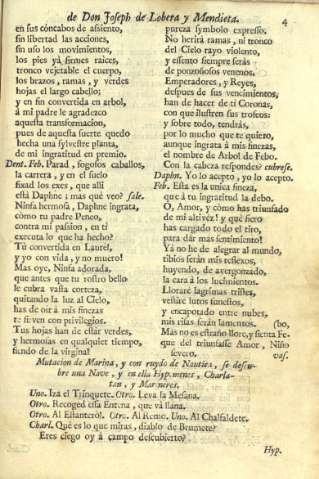 de Don Joseph de Lobera y Mendieta.
4
en sus concabos de assiento,
sin libertad las acciones,
sin uso los movimientos,
los pies yà firmes raices,
tronco vejetable el cuerpo,
los brazos, ramas, y verdes
hojas el largo cabello;
y en fin convertida en arbol,
à mi padre le agradezco
aquesta transformacion,
pues de aquesta suerte quedo
hecha una sylvestre planta,
de mi ingratitud en premio.
Dent. Feb. Parad, fogosos caballos,
la carrera, y en el suelo
fixad los exes, que alli
està Daphne; mas què veo? sale.
Ninfa hermosa, Daphne ingrata,
còmo tu padre Peneo,
contra mi passion, en tì
executa lo que ha hecho?
Tù convertida en Laurel,
y yo con vida, y no muero!
Mas oye, Ninfa adorada,
que antes que tu rostro bello
le cubra vasta corteza,
quitando la luz al Cielo,
has de oir à mis finezas
te sirven con privilegios.
Tus hojas han de estàr verdes,
y hermosas en qualquier tiempo,
siendo de la virginal
pureza symbolo expresso.
No herirà ramas, ni tronco
del Cielo rayo violento,
y essento siempre seràs
de ponzoñosos venenos.
Emperadores, y Reyes,
despues de sus vencimientos,
han de hacer de tì Coronas,
con que ilustren sus trofeos:
y sobre todo, tendràs,
por lo mucho que te quiero,
aunque ingrata à mis finezas,
el nombre de Arbol de Febo.
Con la cabeza respondes? cubrese.
Daphn. Yo lo acepto, yo lo acepto.
Feb. Esta es la unica fineza,
que à tu ingratitud la debo.
O, Amor, y còmo has triunfado
de mi altivèz! y què fiero
has cargado todo el tiro,
para dàr mas sentimiento!
Yà no he de alegrar al mundo,
tibios seràn mis reflexos,
huyendo, de avergonzado,
la cara à los lucimientos.
Llorarè lagrimas tristes,
vestirè lutos funestos,
y encapotado entre nubes,
mis risas seràn lamentos. (bo,
Mas no es estraño llore, y sienta Fe-
que del triunfasse Amor, Niño
severo. vas.
Mutacion de Marina, y con ruydo de Nautica, se descu-
bre una Nave, y en ella Hypomenes, Charla-
tan, y Marineros.
Uno. Iza el Trinquete. Otro. Leva la Mesana.
Otro. Recoged essa Entena, que và llana.
Otro. Al Estanterol. Otro. Al Remo. Uno. Al Chafaldete.
Charl. Què es lo que miras, diablo de Brumete?
Eres ciego oy à campo descubierto?
Hyp.